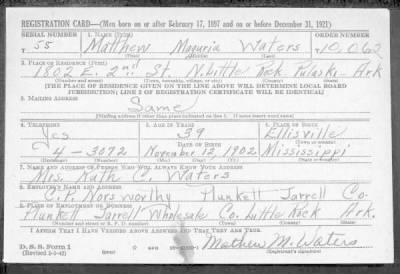 REGISTRATION CARD—(Men born on or after February 17, 1897 and on or before December 31, 1921)
SERIAL NUMBER 1. NAME (Print) ORDER NUMBER
T 55 Matthew Maguria Waters T 10,062
2. PLACE OF RESIDENCE (Print)
1802 E. 2nd St N. Little Rock Pulaski Ark
(Number and street) (Town, township, village, or city) (County) (State)
[THE PLACE OF RESIDENCE GIVEN ON THE LINE ABOVE WILL DETERMINE LOCAL BOARD
JURISDICTION; LINE 2 OF REGISTRATION CERTIFICATE WILL BE IDENTICAL]
3. MAILING ADDRESS
Same
[Mailing address if other than place indicated on line 2. If same insert word same]
4. TELEPHONE 5. AGE IN YEARS 6. PLACE OF BIRTH
Yes 39 Ellisville
DATE OF BIRTH (Town or county)
4-3072 November 12, 1902 Mississippi
(Exchange) (Number) (Mo.) (Day) (Yr.) (State or country)
7. NAME AND ADDRESS OF PERSON WHO WILL ALWAYS KNOW YOUR ADDRESS
Mrs. Kathr C. Waters
8. EMPLOYER'S NAME AND ADDRESS
C. P. Norsworthy Plunkett Jarrell Co.
9. PLACE OF EMPLOYMENT OR BUSINESS
Plunkett Jarrell Wholesale Co. Little Rock Ark.
(Number and street or R. F. D. number) (Town) (County) (State)
I AFFIRM THAT I HAVE VERIFIED ABOVE ANSWERS AND THAT THEY ARE TRUE.
D. S. S. Form 1
(Revised 2-5-42) (over) Mathew M. Waters
(Registrant's signature)